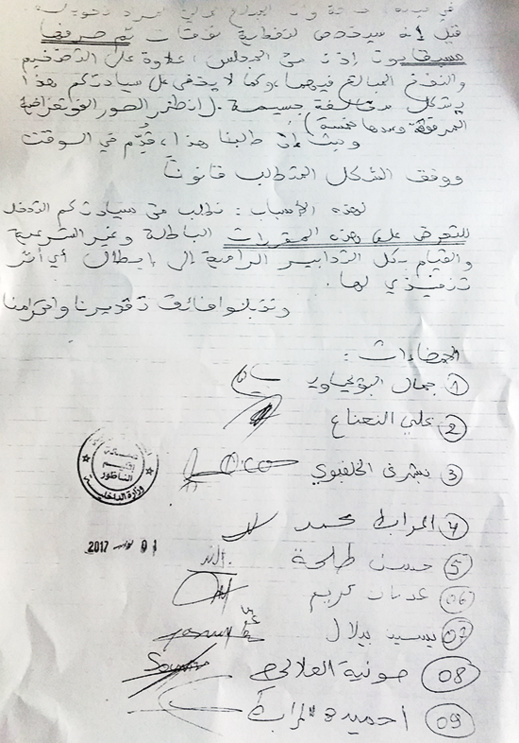 قيل أنه سيخصص لتغطية نفقات تم صرفها
مسبقا بدون إذن من المجلس، علاوة على التضخيم
والنفخ المبالغ فيهما، وكما لا يخفى على سيادتكم هذا
يشكل مخالفة جسيمة. (انظر الصور الفوتغرافية
المرفقة وعددها خمسة)
وحيث إن طلبنا هذا، قدم في الوقت
ووفق الشكل المتطلب قانونا
لهذه الأسباب: نطلب من سيادتكم التدخل
للتعرض على هذه المقررات الباطلة وغير الشرعية
والقيام بكل التدابير الرامية إلى إبطال أي أثر
تنفيذي لها.
وتقبلوا فائق تقديرنا واحترامنا
الإمضاءات:
1 جمال
2 علي النعناع
3 بشرى الخلفيوي
4 المرابط محمد
5 حسن طلحة
06 كريم
07 يسين بلال
08 صونية العلالي
09 أحميدة المرابط
الناظور
وزارة الداخلية
01 2017